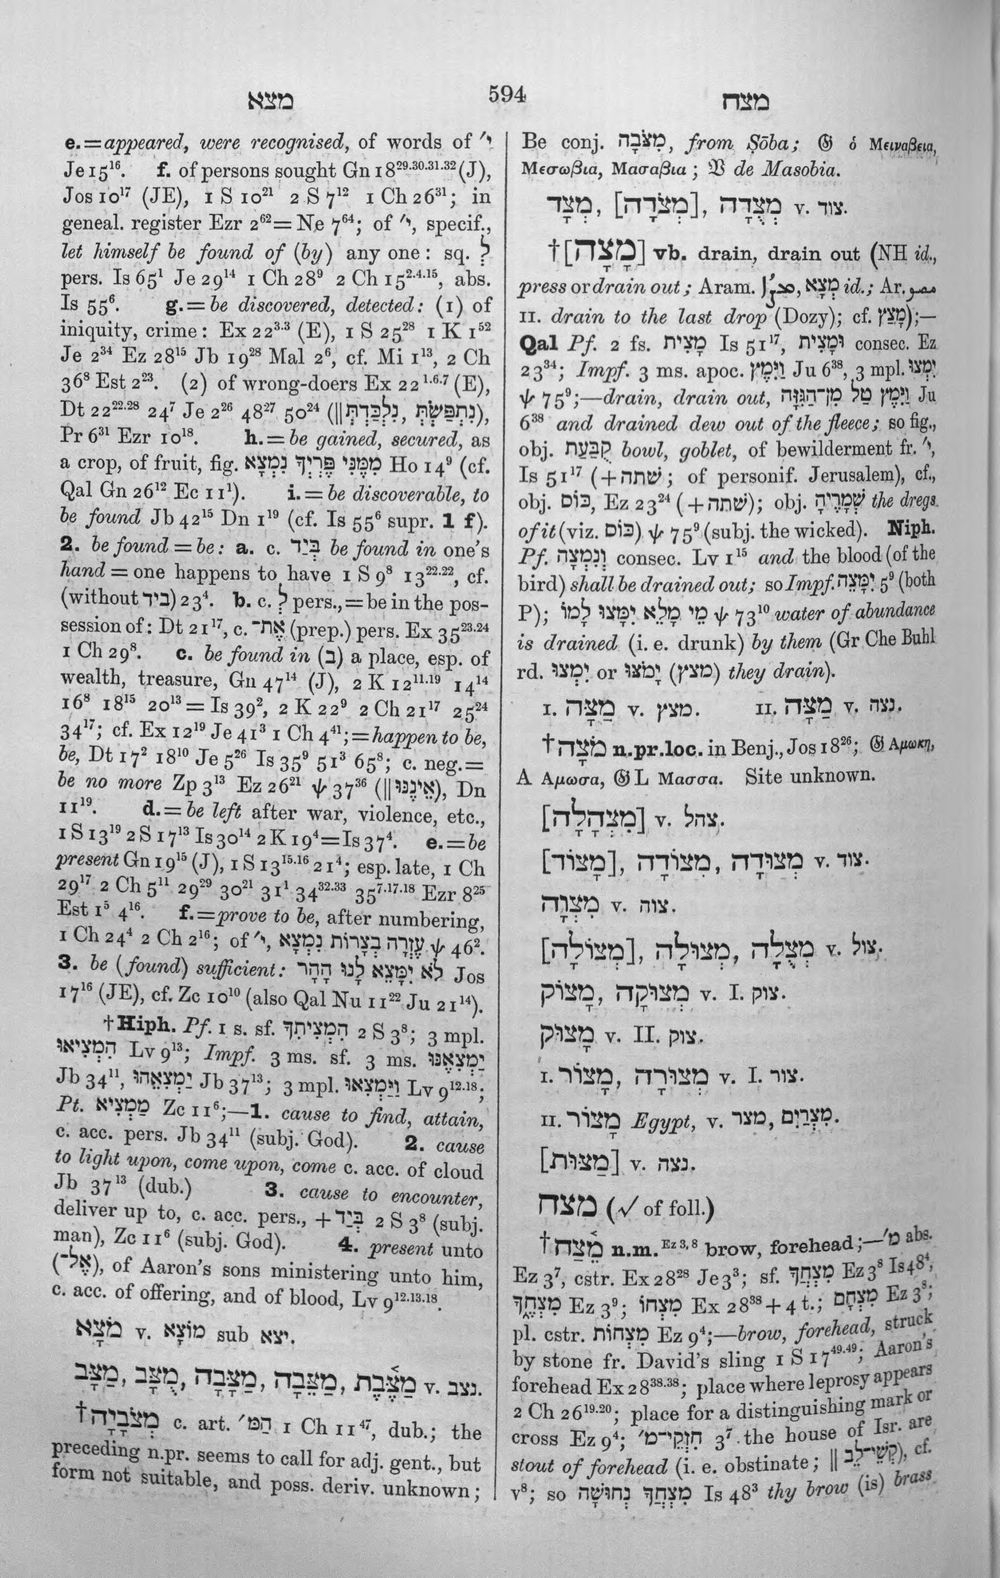 מצא
594
מצח
e.=appeared, were recognised, of words of י׳
Je 15¹⁶. f. of persons sought Gn 18²⁹·³⁰·³¹·³² (J),
Jos 10¹⁷ (JE), 1 S 10²¹ 2 S 7¹² 1 Ch 26³¹; in
geneal. register Ezr 2⁶²=Ne 7⁶⁴; of י׳, specif.,
let himself be found of (by) any one: sq. לְ
pers. Is 65¹ Je 29¹⁴ 1 Ch 28⁹ 2 Ch 15²·⁴·¹⁵, abs.
Is 55⁶. g.=be discovered, detected: (1) of
iniquity, crime: Ex 22³·³ (E), 1 S 25²⁸ 1 K 1⁵²
Je 2³⁴ Ez 28¹⁵ Jb 19²⁸ Mal 2⁶, cf. Mi 1¹³, 2 Ch
36⁸ Est 2²³. (2) of wrong-doers Ex 22¹·⁶·⁷ (E),
Dt 22²²·²⁸ 24⁷ Je 2²⁶ 48²⁷ 50²⁴ (‖נִתְפַּשְׂתְּ, נִלְכַּדְתְּ),
Pr 6³¹ Ezr 10¹⁸. h.=be gained, secured, as
a crop, of fruit, fig. מִמֶּנִּי פֶּרְיְךָ נִמְצָא Ho 14⁹ (cf.
Qal Gn 26¹² Ec 11¹). i.=be discoverable, to
be found Jb 42¹⁵ Dn 1¹⁹ (cf. Is 55⁶ supr. 1 f).
2. be found=be: a. c. בְּיַד be found in one's
hand=one happens to have 1 S 9⁸ 13²²·²², cf.
(without ביד) 23⁴. b. c. לְ pers.,=be in the pos-
session of: Dt 21¹⁷, c. אֶת־ (prep.) pers. Ex 35²³·²⁴
1 Ch 29⁸. c. be found in (ב) a place, esp. of
wealth, treasure, Gn 47¹⁴ (J), 2 K 12¹¹·¹⁹ 14¹⁴
16⁸ 18¹⁵ 20¹³=Is 39², 2 K 22⁹ 2 Ch 21¹⁷ 25²⁴
34¹⁷; cf. Ex 12¹⁹ Je 41³ 1 Ch 4⁴¹;=happen to be,
be, Dt 17² 18¹⁰ Je 5²⁶ Is 35⁹ 51³ 65⁸; c. neg.=
be no more Zp 3¹³ Ez 26²¹ ψ 37³⁶ (‖אֵינֶנּוּ), Dn
11¹⁹. d.=be left after war, violence, etc.,
1 S 13¹⁹ 2 S 17¹³ Is 30¹⁴ 2 K 19⁴=Is 37⁴. e.=be
present Gn 19¹⁵ (J), 1 S 13¹⁵·¹⁶ 21⁴; esp. late, 1 Ch
29¹⁷ 2 Ch 5¹¹ 29²⁹ 30²¹ 31¹ 34³²·³³ 35⁷·¹⁷·¹⁸ Ezr 8²⁵
Est 1⁵ 4¹⁶. f.=prove to be, after numbering,
1 Ch 24⁴ 2 Ch 2¹⁶; of י׳, עֶזְרָה בְצָרוֹת נִמְצָא ψ 46².
3. be (found) sufficient: לֹא יִמָּצֵא לָנוּ הָהָר Jos
17¹⁶ (JE), cf. Zc 10¹⁰ (also Qal Nu 11²² Ju 21¹⁴).
†Hiph. Pf. 1 s. sf. הִמְצִיתִךָ 2 S 3⁸; 3 mpl.
הִמְצִיאוּ Lv 9¹³; Impf. 3 ms. sf. 3 ms. יַמְצִאֶנּוּ
Jb 34¹¹, יַמְצִאֵהוּ Jb 37¹³; 3 mpl. וַיַּמְצִאוּ Lv 9¹²·¹⁸;
Pt. מַמְצִיא Zc 11⁶;—1. cause to find, attain,
c. acc. pers. Jb 34¹¹ (subj. God). 2. cause
to light upon, come upon, come c. acc. of cloud
Jb 37¹³ (dub.) 3. cause to encounter,
deliver up to, c. acc. pers., +בְּיַד 2 S 3⁸ (subj.
man), Zc 11⁶ (subj. God). 4. present unto
(אֶל־), of Aaron's sons ministering unto him,
c. acc. of offering, and of blood, Lv 9¹²·¹³·¹⁸.
מֹצָא v. מוֹצָא sub יצא.
מַצֶּבֶת, מַצֵּבָה, מַצָּבָה, מֻצָּב, מַצָּב v. נצב.
†מְצֹבָיָה c. art. הַמְּ׳ 1 Ch 11⁴⁷, dub.; the
preceding n.pr. seems to call for adj. gent., but
form not suitable, and poss. deriv. unknown;
Be conj. מִצֹּבָה, from Ṣōba; 𝔊 ὁ Μειναβεια,
Μεσωβια, Μασαβια; 𝔙 de Masobia.
מְצֻדָה, [מְצֹדָה], מְצָד v. צוד.
†[מָצָה] vb. drain, drain out (NH id.,
press or drain out; Aram. מְצָא id.; Ar.
II. drain to the last drop (Dozy); cf. מָצַץ);—
Qal Pf. 2 fs. מָצִית Is 51¹⁷, וּמָצִית consec. Ez
23³⁴; Impf. 3 ms. apoc. וַיִּמֶץ Ju 6³⁸, 3 mpl. יִמְצוּ
ψ 75⁹;—drain, drain out, וַיִּמֶץ טַל מִן־הַגִּזָּה Ju
6³⁸ and drained dew out of the fleece; so fig.,
obj. קֻבַּעַת bowl, goblet, of bewilderment fr. י׳,
Is 51¹⁷ (+שׁתה; of personif. Jerusalem), cf.,
obj. כּוֹס, Ez 23³⁴ (+שׁתה); obj. שְׁמָרֶיהָ the dregs
of it (viz. כּוֹס) ψ 75⁹ (subj. the wicked). Niph.
Pf. וְנִמְצָה consec. Lv 1¹⁵ and the blood (of the
bird) shall be drained out; so Impf. יִמָּצֵה 5⁹ (both
P); מֵי מָלֵא יִמָּצוּ לָמוֹ ψ 73¹⁰ water of abundance
is drained (i. e. drunk) by them (Gr Che Buhl
rd. יִמְצוּ or יָמֹצּוּ (מצץ) they drain).
I. מַצָּה v. מצץ. II. מַצָּה v. נצה.
†מֹצָה n.pr.loc. in Benj., Jos 18²⁶; 𝔊 Αμωκη,
A Αμωσα, 𝔊L Μασσα. Site unknown.
[מִצְהָלָה] v. צהל.
[מָצוֹד], מְצוֹדָה, מְצוּדָה v. צוד.
מִצְוָה v. צוה.
[מְצוֹלָה], מְצוּלָה, מְצֻלָה v. צול.
מָצוֹק, מְצוּקָה v. I. צוק.
מָצוּק v. II. צוק.
I. מָצוֹר, מְצוּרָה v. I. צור.
II. מָצוֹר Egypt, v. מצר, מִצְרַיִם.
[מַצּוּת] v. נצה.
מצח (√ of foll.)
†מֵצַח n.m. Ez 3, 8 brow, forehead;—מ׳ abs.
Ez 3⁷, cstr. Ex 28²⁸ Je 3³; sf. מִצְחֲךָ Ez 3⁸ Is 48⁴,
מִצְחֶךָ Ez 3⁹; מִצְחוֹ Ex 28³⁸+4 t.; מִצְחָם Ez 3⁸;
pl. cstr. מִצְחוֹת Ez 9⁴;—brow, forehead, struck
by stone fr. David's sling 1 S 17⁴⁹·⁴⁹; Aaron's
forehead Ex 28³⁸·³⁸; place where leprosy appears
2 Ch 26¹⁹·²⁰; place for a distinguishing mark or
cross Ez 9⁴; חִזְקֵי־מ׳ 3⁷ the house of Isr. are
stout of forehead (i. e. obstinate; ‖ קְשֵׁי־לֵב), cf.
v⁸; so מִצְחֲךָ נְחוּשָׁה Is 48³ thy brow (is) brass